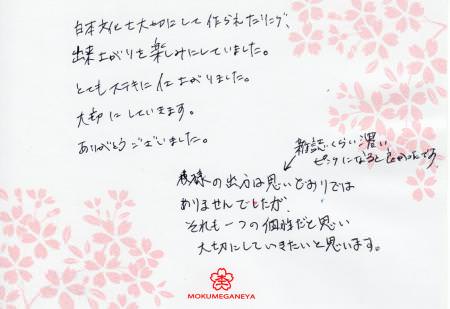 日本文化を大切にして作られたリング、
出来上がりを楽しみにしていました。
とてもステキに仕上がりました。
大切にしていきます。
ありがとうございました。
雑誌くらい濃い
ピンクになると良かったです
模様の出方は思いどおりでは
ありませんでしたが、
それも一つの個性だと思い
大切にしていきたいと思います。
MOKUMEGANEYA